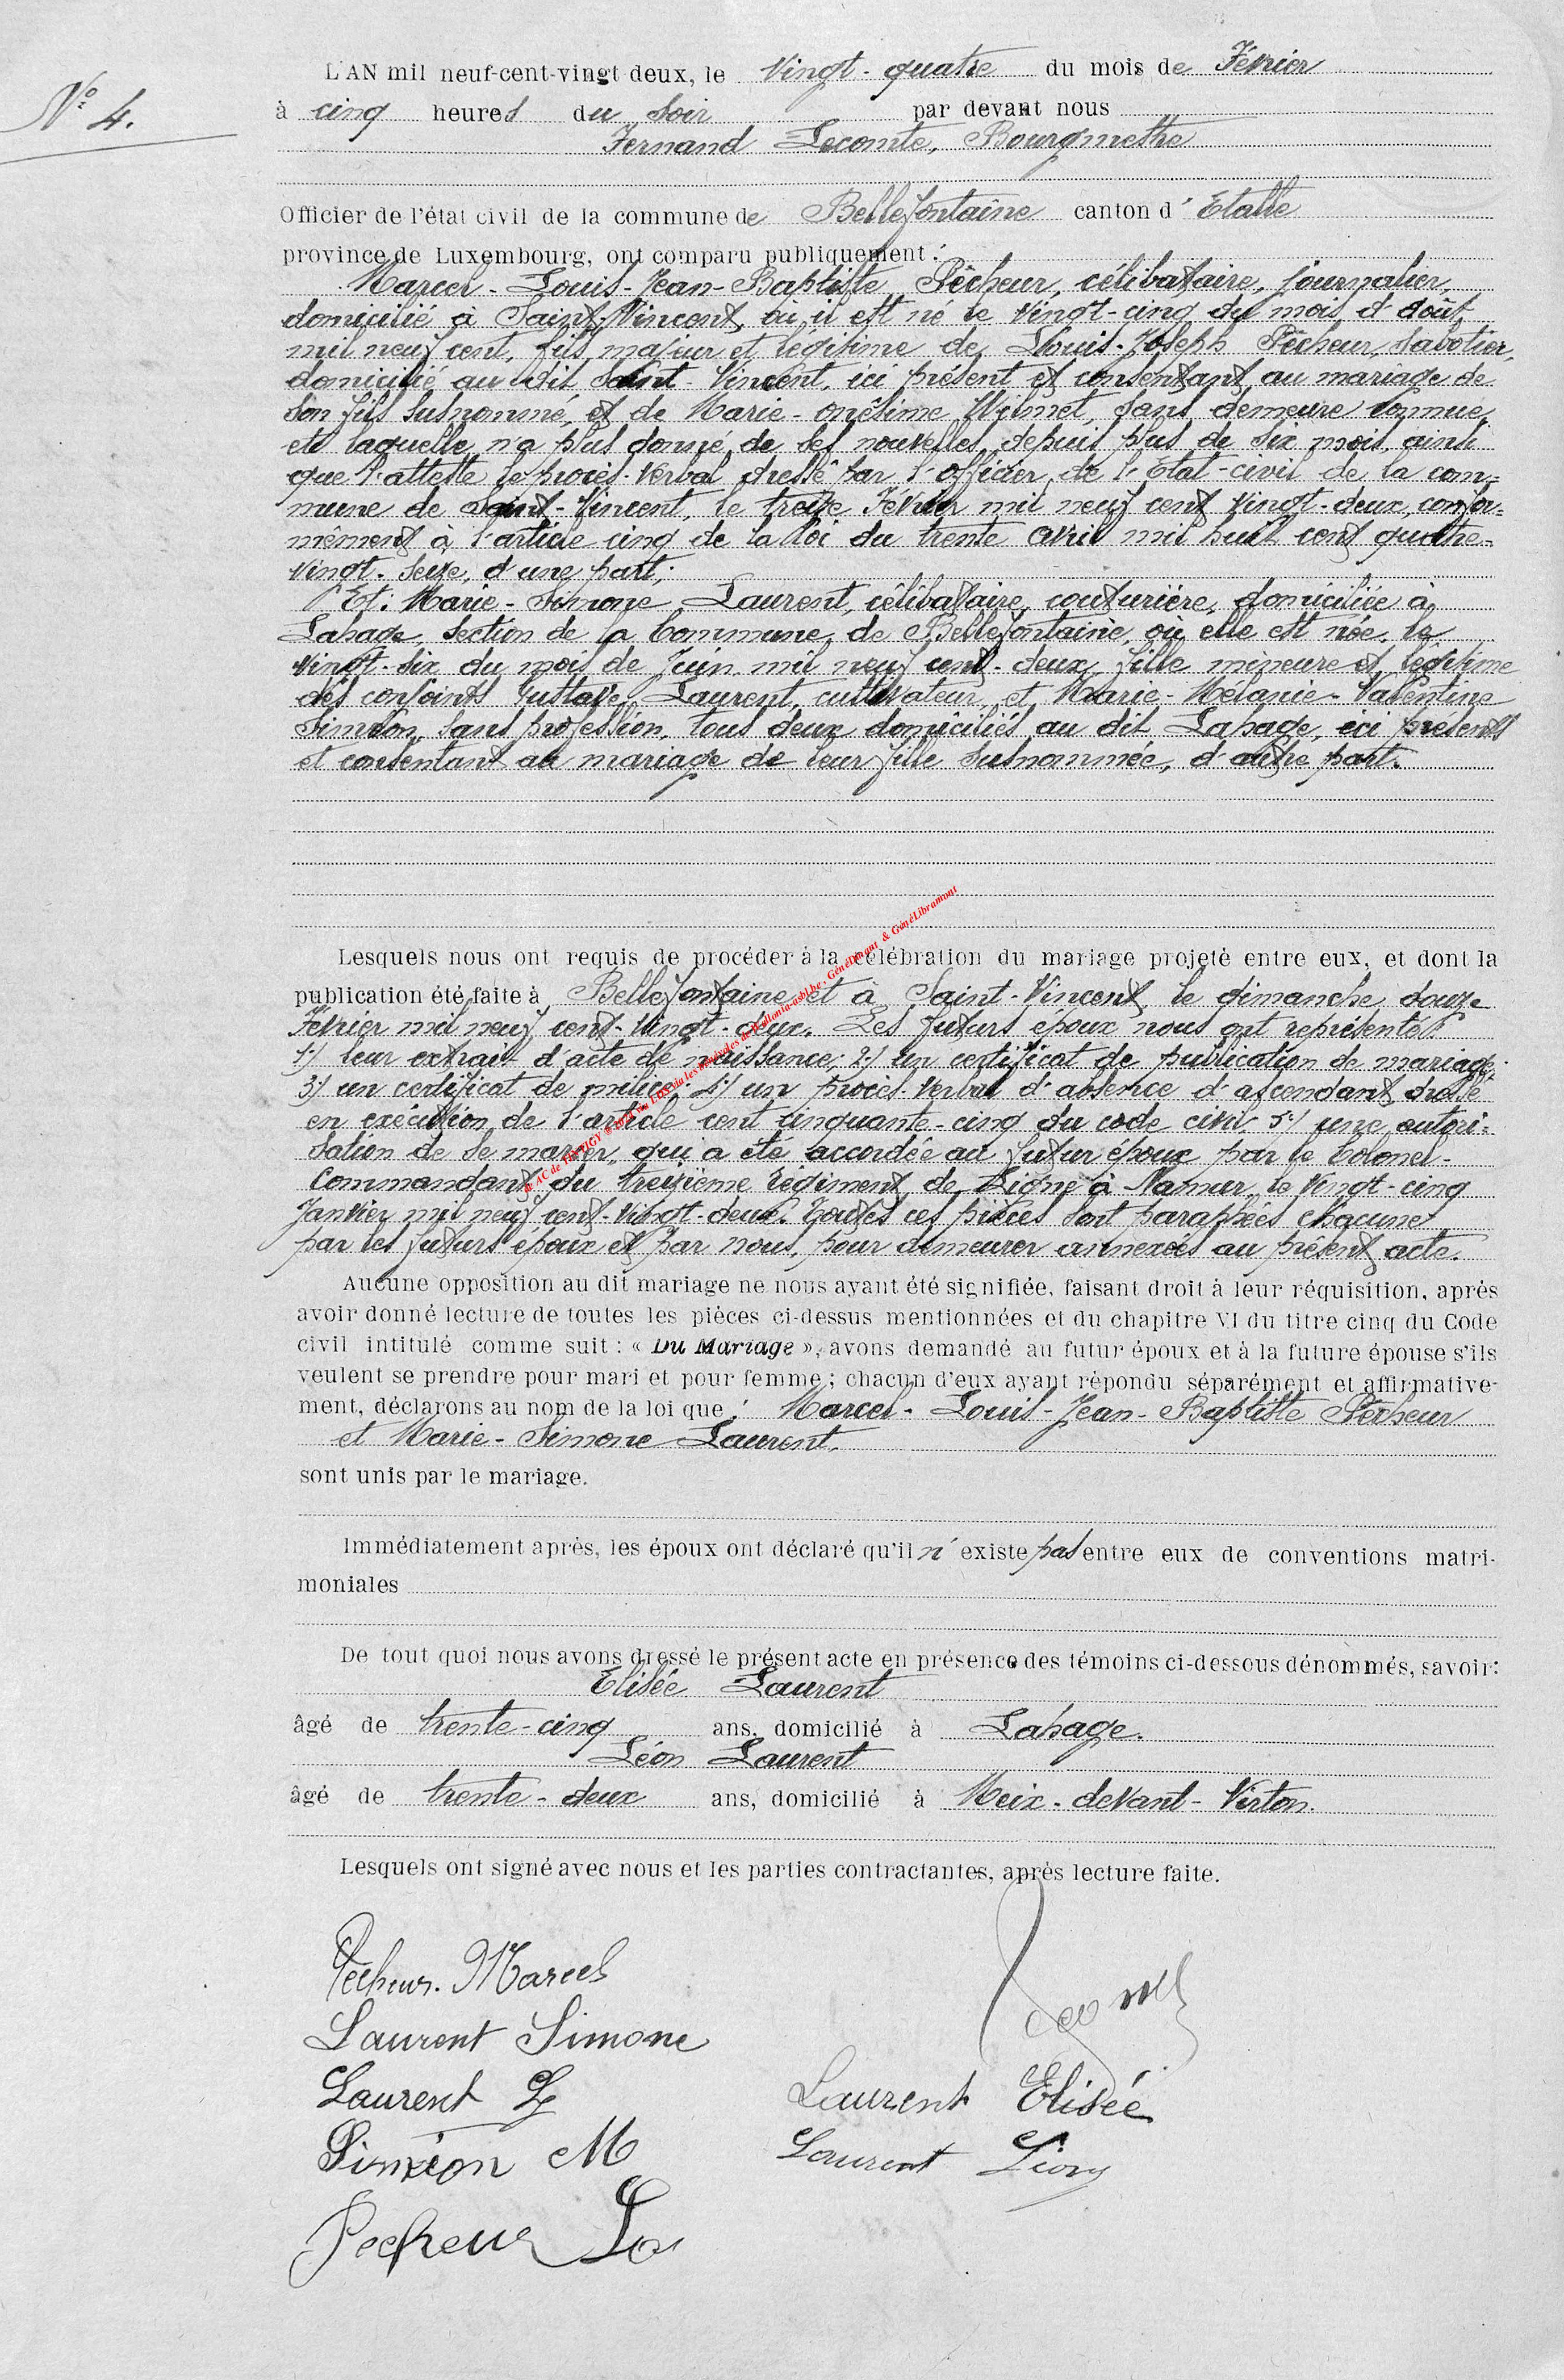 N° 4.
L'AN mil neuf-cent-vingt deux, le Vingt-quatre du mois de Février
à cinq heures du Soir par devant nous
Fernand Lecomte, Bourgmestre
Officier de l'état civil de la commune de Bellefontaine canton d' Etalle
province de Luxembourg, ont comparu publiquement :
Marcel-Louis-Jean-Baptiste Pêcheur, célibataire, journalier,
domicilié à Saint-Vincent, où il est né le Vingt-cinq du mois d'Août,
mil neuf cent, fils majeur et légitime de Louis-Joseph Pêcheur, Sabotier,
domicilié au dit Saint-Vincent, ici présent et consentant au mariage de
son fils susnommé, et de Marie-onésime Wilmet, sans demeure connue,
et laquelle n'a plus donné de ses nouvelles depuis plus de six mois, ainsi
que l'atteste le procès-Verbal dressé par l'officier de l'Etat-civil de la com-
mune de Saint-Vincent, le treize Février mil neuf cent Vingt-deux, confor-
mément à l'article cinq de la loi du trente Avril mil huit cent quatre-
vingt-seize, d'une part;
Et: Marie-Simone Laurent, célibataire, couturière, domiciliée à
Lahage, section de la Commune de Bellefontaine, où elle est née, le
vingt-six du mois de Juin mil neuf cent-deux, fille mineure et légitime
des conjoints Gustave Laurent, cultivateur, et Marie-Mélanie-Valentine
Siméon, sans profession, tous deux domiciliés au dit Lahage, ici présents
et consentant au mariage de leur fille susnommée, d'autre part.
Lesquels nous ont requis de procéder à la célébration du mariage projeté entre eux, et dont la
publication été faite à Bellefontaine et à Saint-Vincent le dimanche douze
Février mil neuf cent-Vingt-deux. Les futurs époux nous ont représenté:
1:/ leur extrait d'acte de naissance; 2:/ Un certificat de publication de mariage;
3:/ un certificat de milice; 4:/ un procès-Verbal d'absence d'ascendant dressé
en exécution de l'article cent cinquante-cinq du code civil 5:/ une autori-
sation de se marier, qui a été accordée au futur époux par le Colonel-
Commandant du treizième régiment de Ligne à Namur, le Vingt-cinq
Janvier mil neuf cent-Vingt-deux. Toutes ces pièces sont paraphées chacune
par les futurs époux et par nous, pour demeurer annexées au présent acte.
Aucune opposition au dit mariage ne nous ayant été signifiée, faisant droit à leur réquisition, après
avoir donné lecture de toutes les pièces ci-dessus mentionnées et du chapitre VI du titre cinq du Code
civil intitulé comme suit : « Du Mariage », avons demandé au futur époux et à la future épouse s'ils
veulent se prendre pour mari et pour femme ; chacun d'eux ayant répondu séparément et affirmative-
ment, déclarons au nom de la loi que : Marcel-Louis-Jean-Baptiste Pêcheur
et Marie-Simone Laurent,
sont unis par le mariage.
Immédiatement après, les époux ont déclaré qu'il n'existe pas entre eux de conventions matri-
moniales
De tout quoi nous avons dressé le présent acte en présence des témoins ci-dessous dénommés, savoir :
Elisée Laurent
âgé de trente-cinq ans, domicilié à Lahage.
Léon Laurent
âgé de trente-deux ans, domicilié à Meix-devant-Virton.
Lesquels ont signé avec nous et les parties contractantes, après lecture faite.
Pêcheur. Marcel
Laurent Simone
Laurent G
Laurent Elisée
Siméon M
Laurent Léon
Pecheur Ls